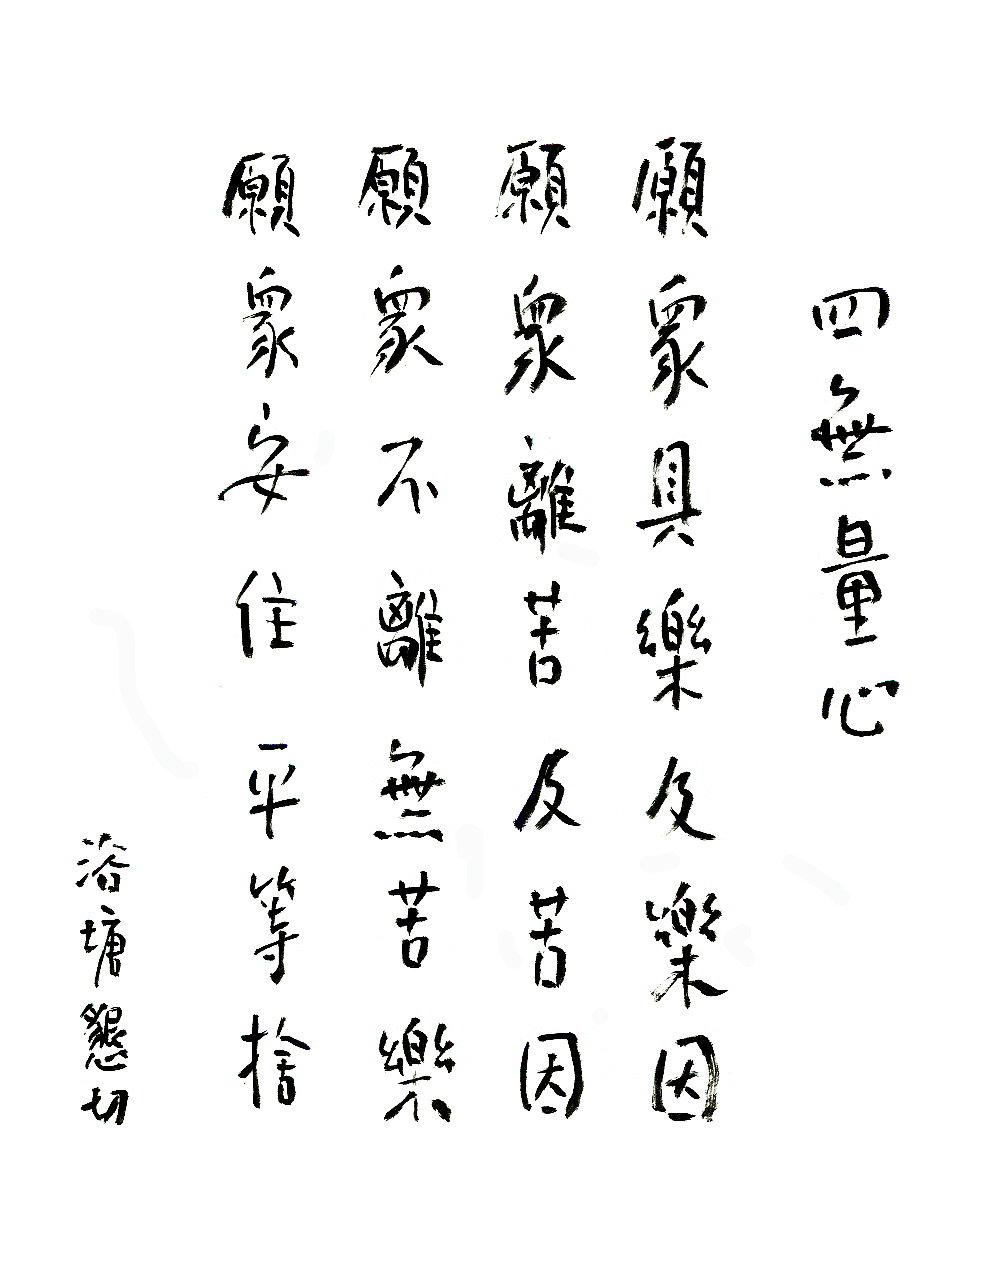 四無量心
願眾具樂及樂因
願眾離苦及苦因
願眾不離無苦樂
願眾安住平等捨
浴塘懇切